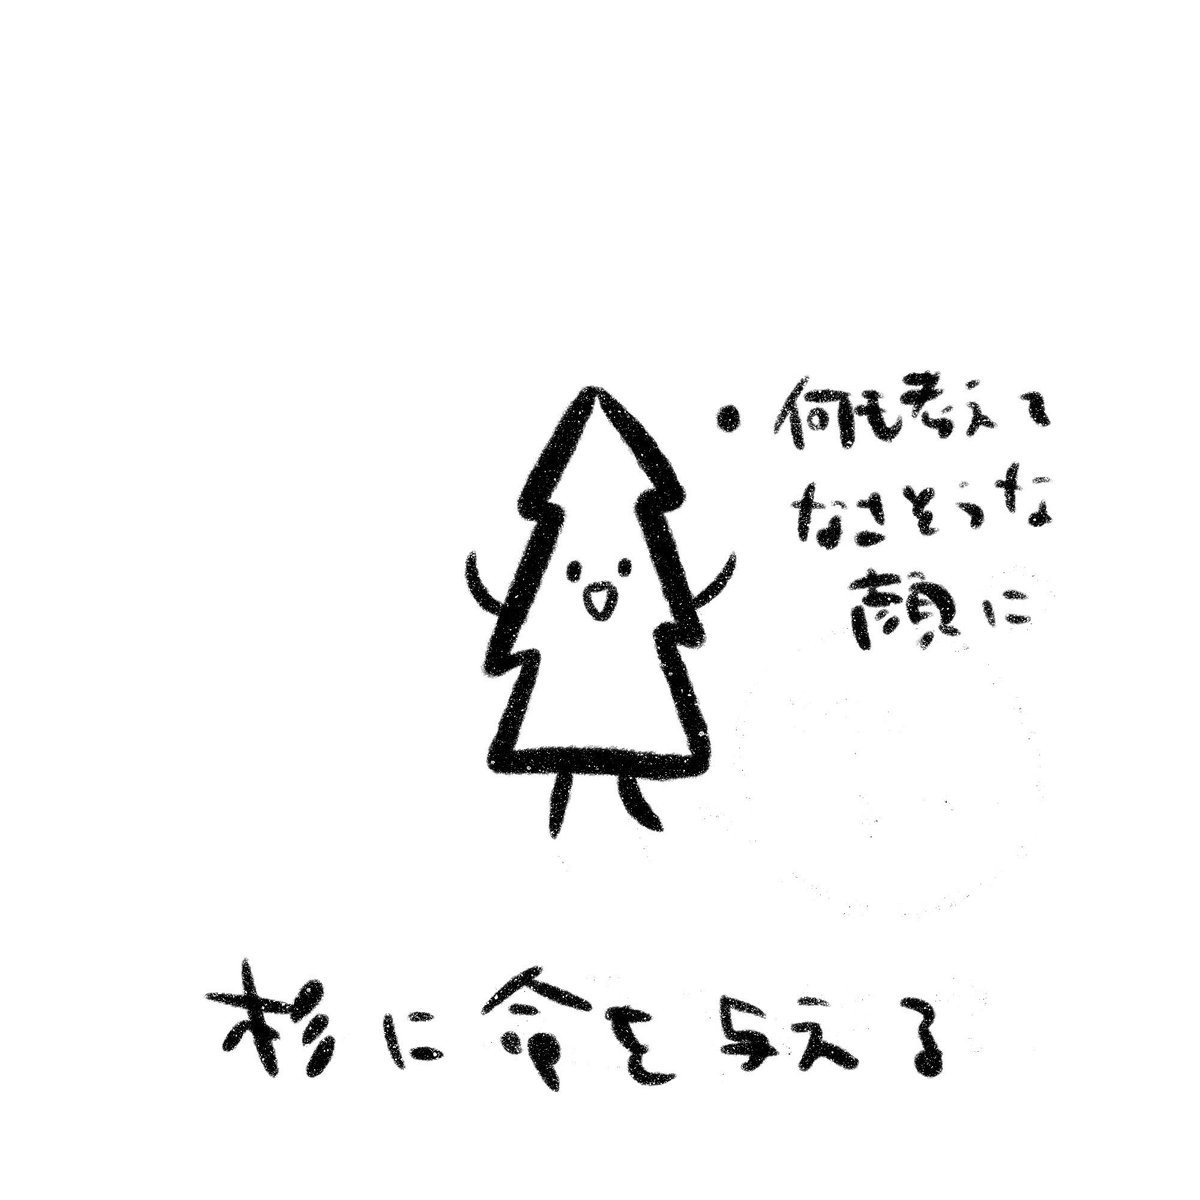 ・何も考えて
なさそうな
顔に
杉に命を与える